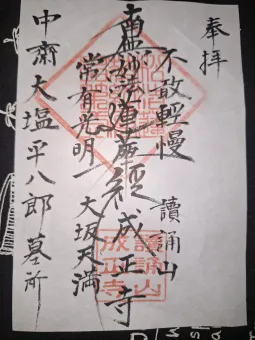 奉拝
不敢軽慢 讀誦山
南無妙法蓮華経 成正寺
常有光明 大坂天満
中齋大塩平八郎墓所
讀誦山
成正寺